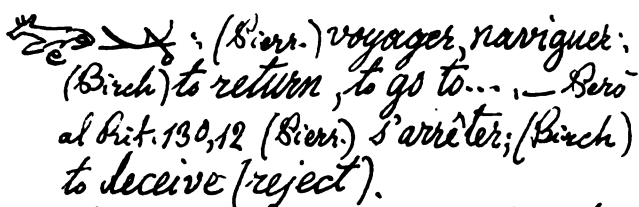 : (Pierr.) voyager, naviguer;
(Birch) to return, to go to..., — Però
al Rit. 130,12 (Pierr.) s'arrêter; (Birch)
to deceive (reject).